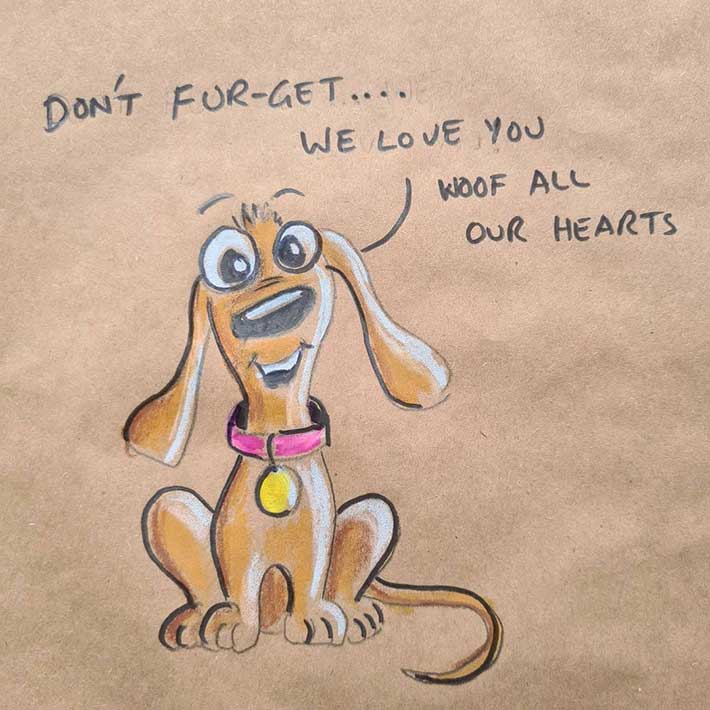 DON'T FUR-GET....
WE LOVE YOU
WOOF ALL
OUR HEARTS